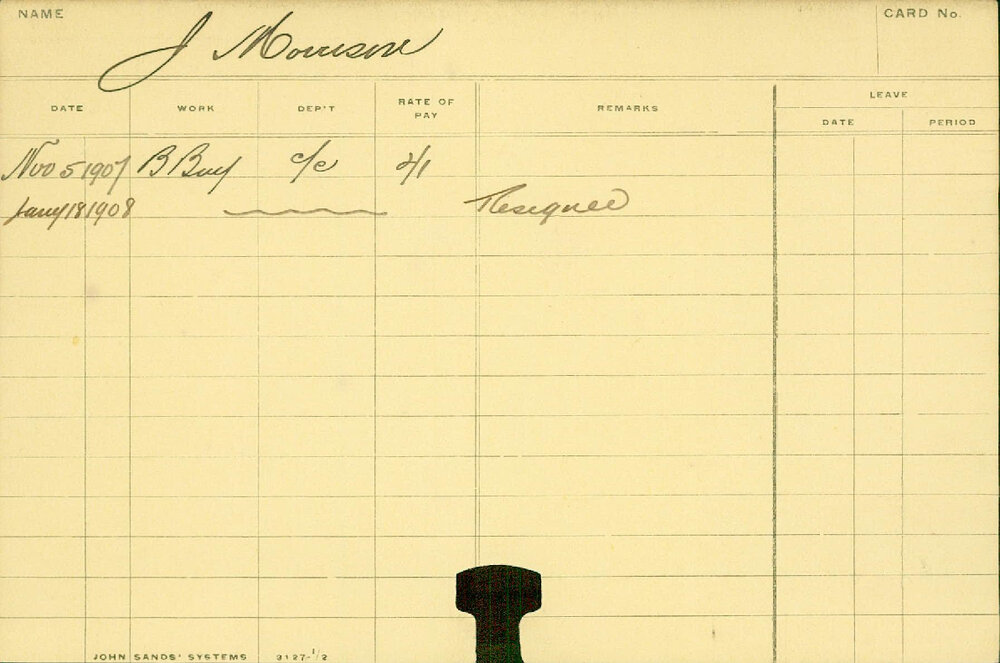 NAME J Morrison CARD No.
DATE WORK DEP'T RATE OF PAY REMARKS LEAVE
DATE PERIOD
Nov 5 1907 B Boy c/c 2/1
Jany 18 1908 Resigned
JOHN SANDS' SYSTEMS 3127-1/2